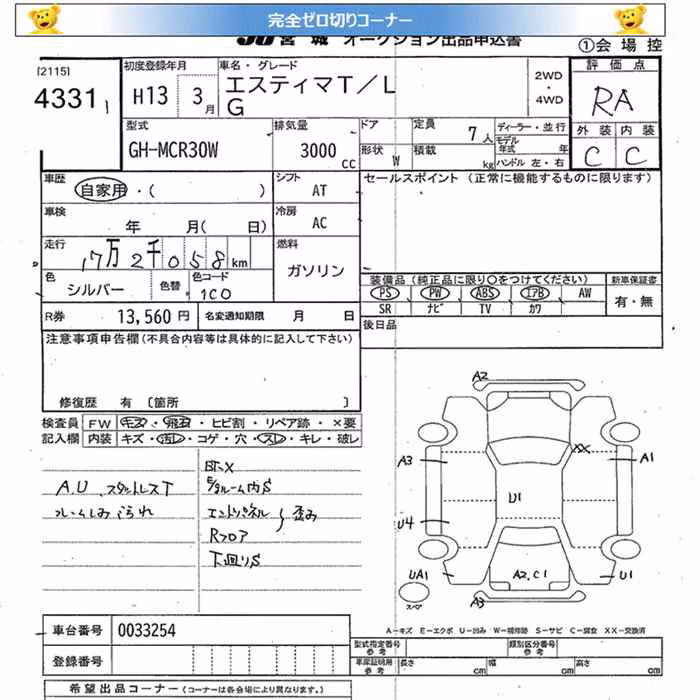 完全ゼロ切りコーナー
JU宮城 オークション出品申込書
①会場控
[2115]
4331
初度登録年月
H13 3月
車名・グレード
エスティマT/L
G
2WD・4WD
評価点
RA
型式
GH-MCR30W
排気量
3000 cc
ドア
形状 W
定員 7人
積載 kg
ディーラー・並行
モデル年式 年
ハンドル 左・右
外装 内装
C C
車歴
自家用・( )
シフト
AT
セールスポイント (正常に機能するものに限ります)
車検
年 月( 日)
冷房
AC
走行
17万2千058km
燃料
ガソリン
色
シルバー
色替
色コード
1C0
装備品(純正品に限り○をつけてください)
新車保証書
PS PW ABS エアB AW
有・無
SR ナビ TV カワ
R券 13,560円
名変通知期限 月 日
後日品
注意事項申告欄(不具合内容等は具体的に記入して下さい)
修復歴 有 〔箇所 〕
検査員記入欄
FW キズ・飛石・ヒビ割・リペア跡・×要
内装 キズ・汚レ・コゲ・穴・スレ・キレ・破レ
A.U、スタットレスT
フレームしみつられ
BT-X
E/gルーム内S
エンドパネル 〜 歪み
Rフロア
下回りS
A2
A3
XX
A1
U1
U4
UA1
A2,C1
U1
A3
スペア
A-キズ E-エクボ U-凹み W-補修跡 S-サビ C-腐食 XX-交換済
車台番号 0033254
登録番号
型式指定番号 参考
類別区分番号 参考
車庫証明用 参考
長さ cm 幅 cm 高さ cm
希望出品コーナー(コーナーは各会場により異なります。)